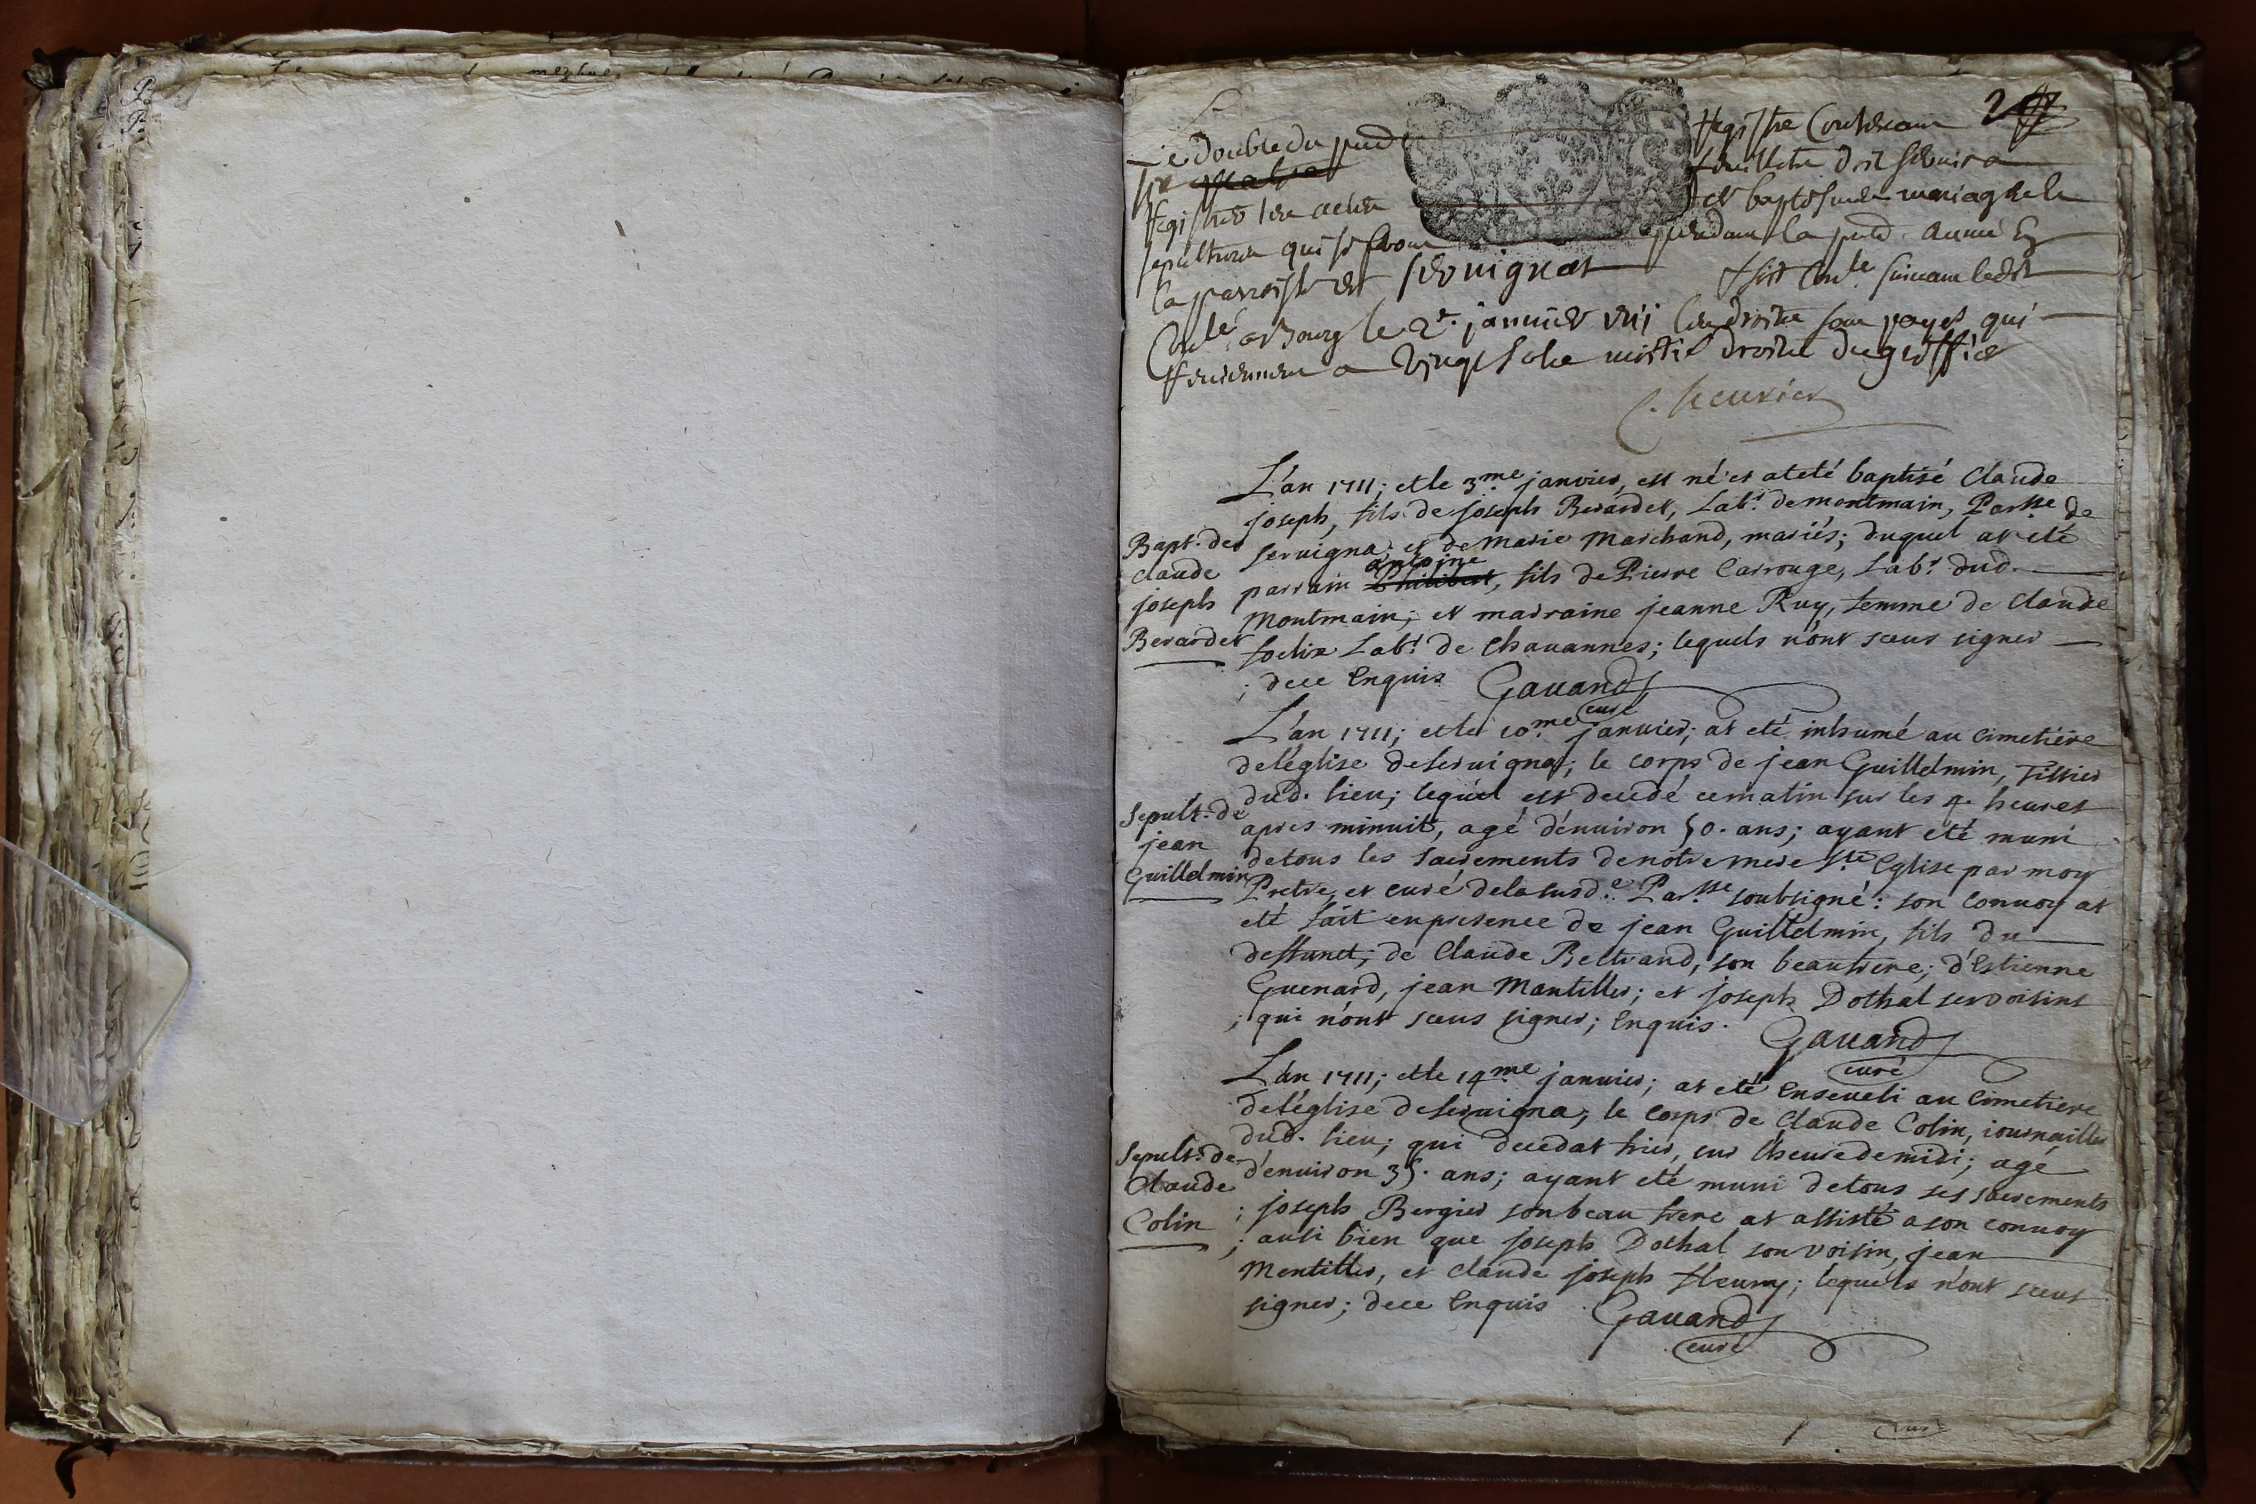 Le double du pnt Registre Contenant
six feuillets doit servir a
Registrer les actes de baptesmes mariages et
sepultures qui se feront pendant la pnte année En
la parroisse de servignat
Coulé a Bourg le 2e. janvier 1711 les droits sont payés qui
reviennent a vingt sols moitié droits du greffier
2
L'an 1711; et le 3.me janvier, est né et at eté baptisé Claude
joseph, fils de joseph Berardet, Labr. de montmain, Par.sse de
servigna; et de Marie Marchand, mariés; duquel at eté
parrain antoine, fils de Pierre Carrouge, Labr. dud.
Montmain; et marraine jeanne Ruy, femme de Claude
foelix Labr. de Chauannes; lequels n'ont sceus signer
; de ce Enquis Gauand
curé
Bapt. de
claude
joseph
Berardet
L'an 1711; et le 10.me janvier; at eté inhumé au Cimetiére
de l'église de servigna; le corps de jean Guillelmin, Tissier
dud. lieu; lequel est decedé ce matin sur les 4. heures
apres minuit, agé d'enuiron 50. ans; ayant eté muni
de tous les sacrements de nôtre mere Ste Eglise par moy
Pretre, et curé de la susd.e Par.sse soubsigné: son conuoy at
eté fait en presence de jean Guillelmin, fils du
deffunct; de Claude Beltrand, son beaufrere; d'Estienne
Guenard, jean Mantillier; et joseph Dothal ses voisins
; qui n'ont sceus signer; Enquis. Gauand
curé
Sepult. de
jean
Guillelmin
L'an 1711; et le 14.me janvier; at eté Enseueli au Cimetiere
de l'église de servigna; le corps de Claude Colin, iournaillier
dud. lieu; qui decedat hier, sur l'heure de midi; agé
d'enuiron 35. ans; ayant eté muni de tous ses sacrements
; joseph Bergier son beau frere at assisté a son conuoy
; aussi bien que joseph Dothal son voisin, jean
Mentillier, et Claude joseph fleury; lequels n'ont sceus
signer; de ce Enquis Gauand
curé
Sepult. de
Claude
Colin